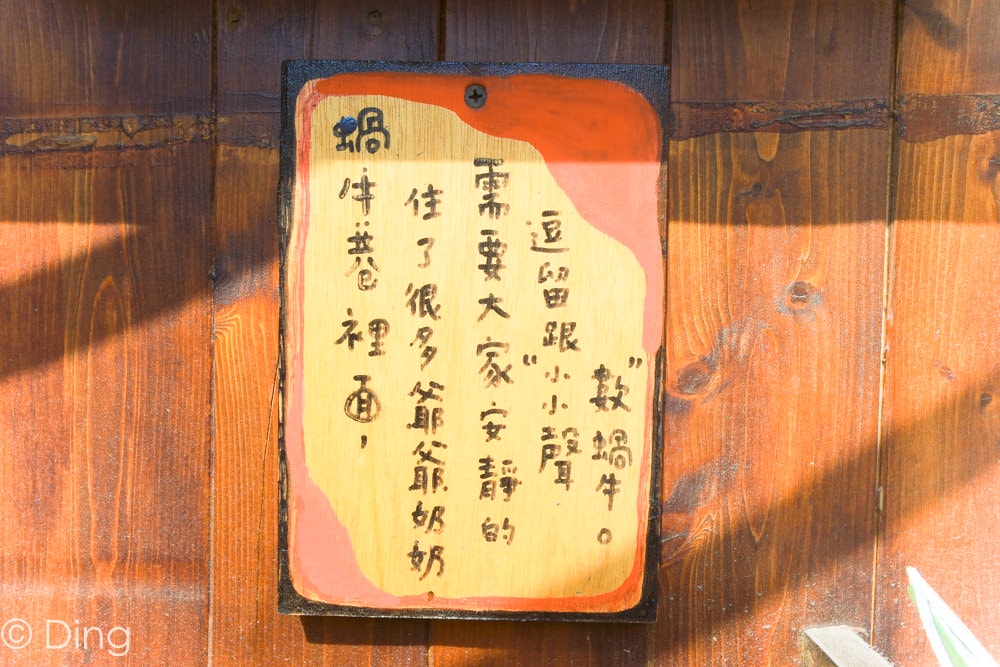 蝸牛巷裡面，
住了很多爺爺奶奶
需要大家安靜的
逗留跟"小小聲
數"蝸牛。
© Ding